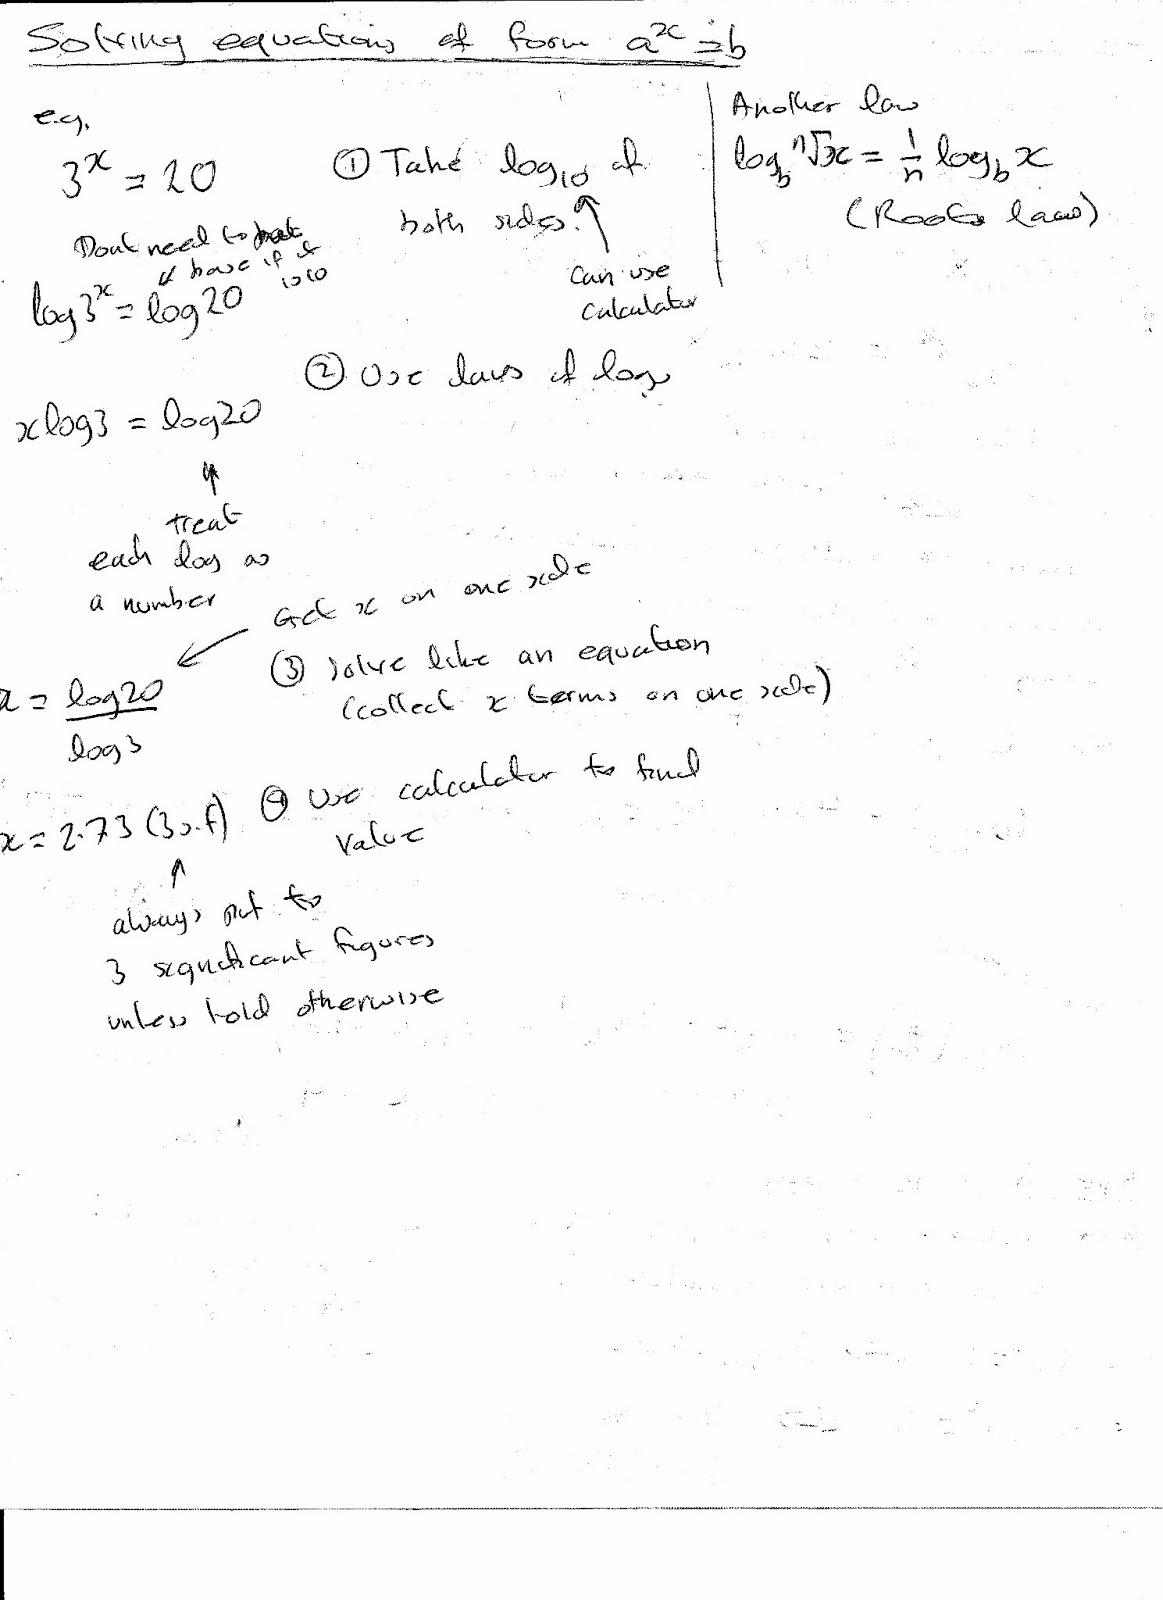 Solving equations of form aˣ = b
e.g.
3ˣ = 20
① Take log₁₀ of
both sides.
can use
calculator
Another law
log_b ⁿ√x = 1/n log_b x
(Roots law)
Dont need to
base if it
is 10
log3ˣ = log20
② Use laws of logs
xlog3 = log20
treat
each log as
a number
Get x on one side
③ Solve like an equation
(collect x terms on one side)
x = log20 / log3
④ Use calculator to find
value
x = 2.73 (3s.f)
always put to
3 significant figures
unless told otherwise